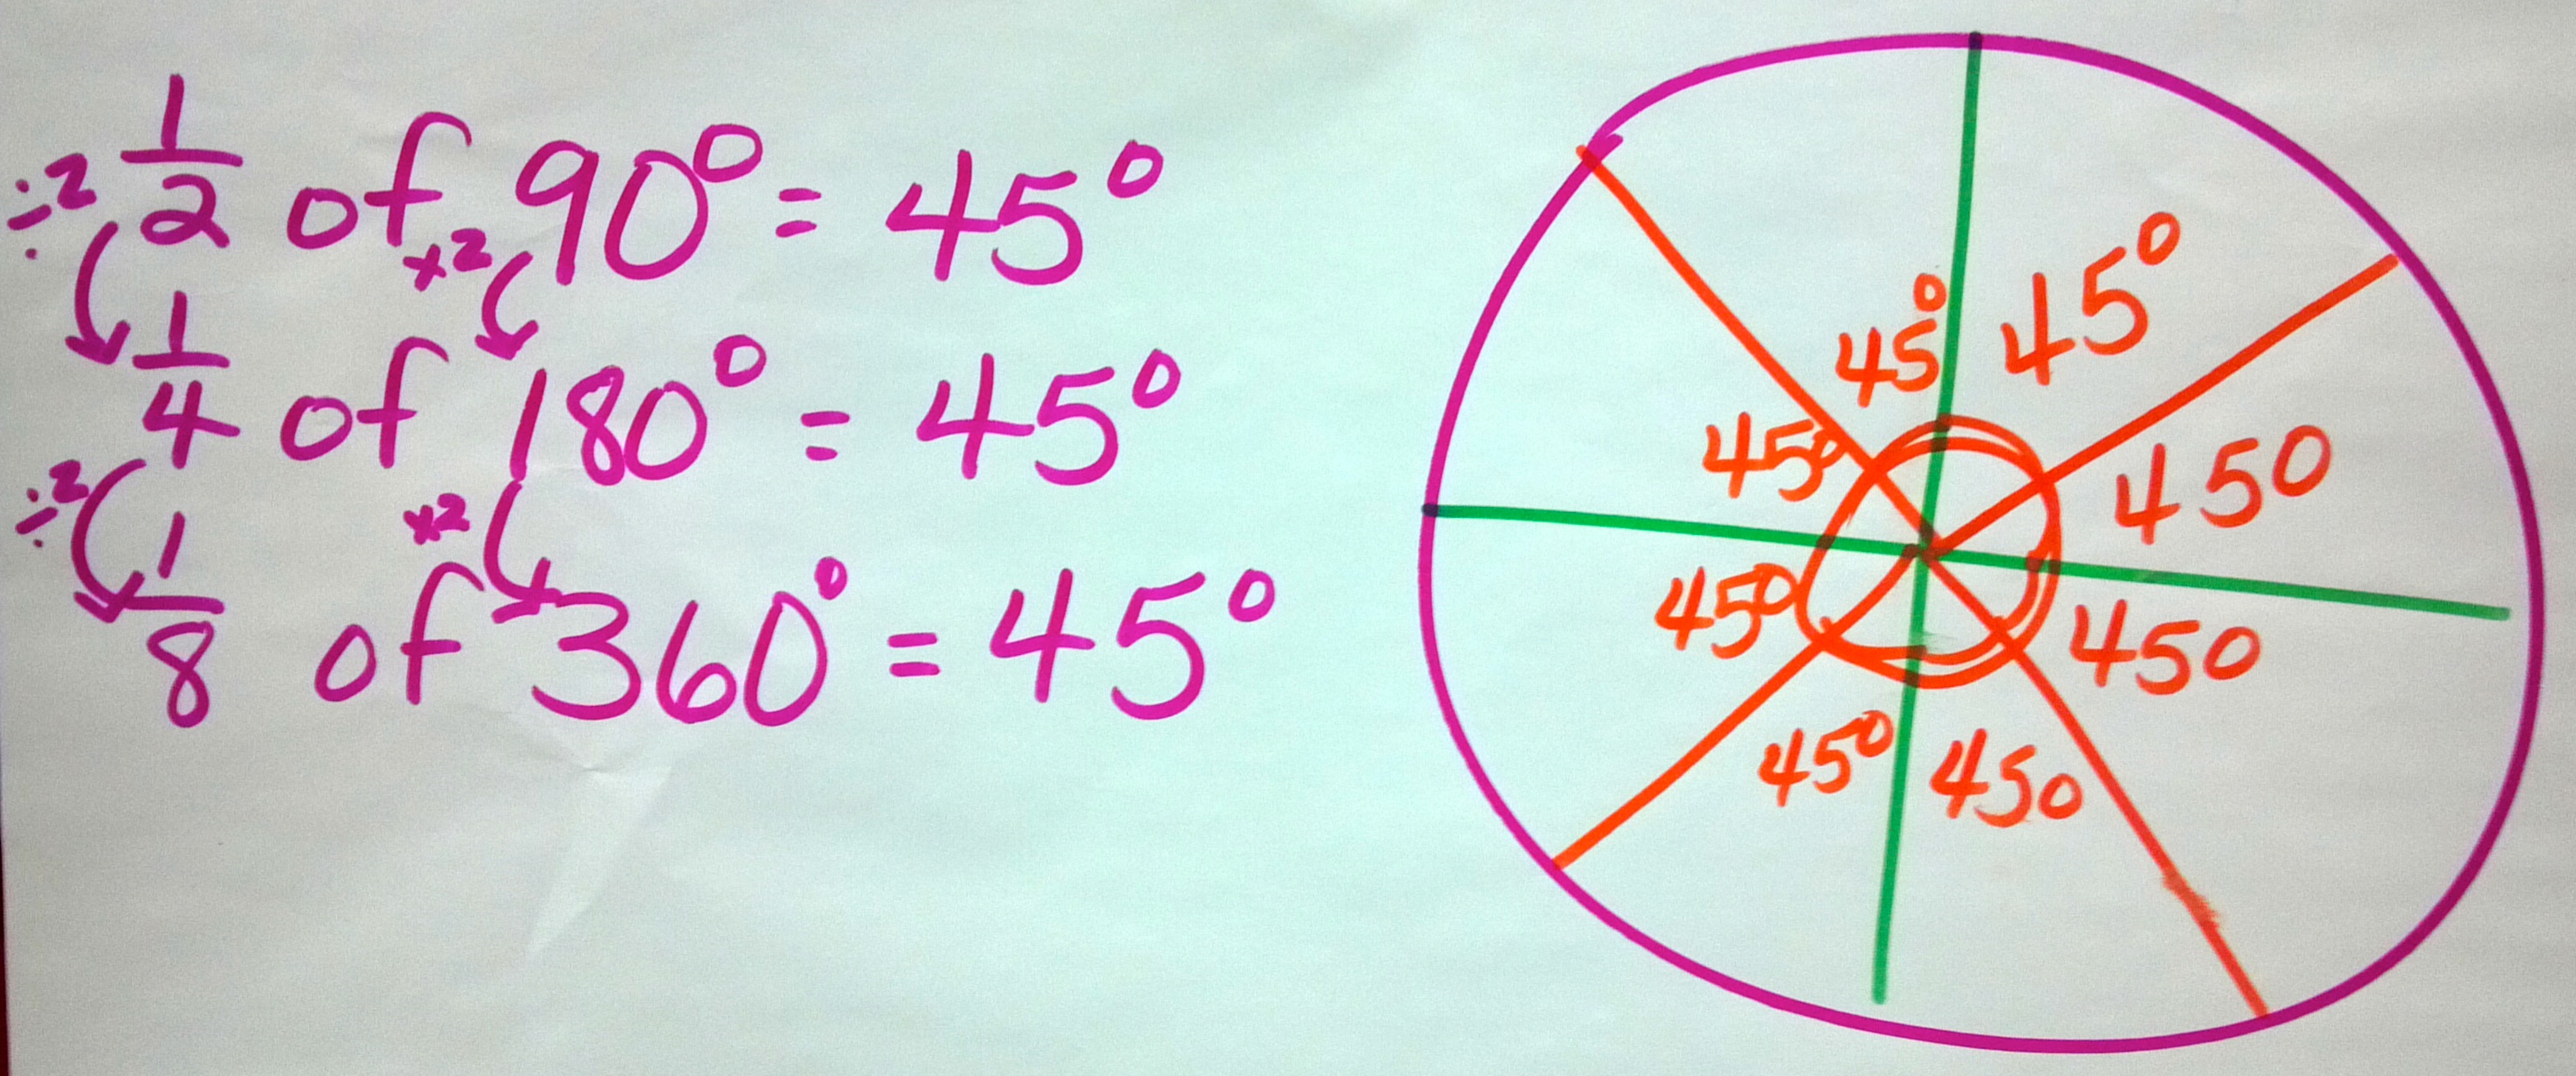 ÷2 1/2 of 90° = 45°
×2
1/4 of 180° = 45°
÷2 ×2
1/8 of 360° = 45°
45° 45°
45° 45°
45° 45°
45° 45°